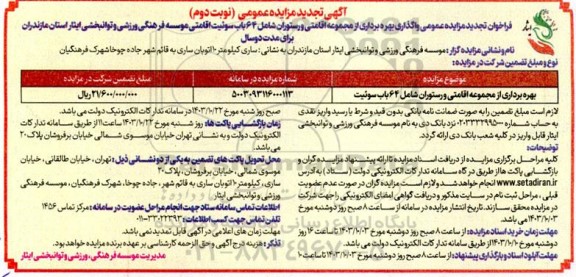 آگهی تجدید مزایده عمومی (نوبت دوم)
فراخوان تجدید مزایده عمومی واگذاری بهره برداری از مجموعه اقامتی و رستوران شامل ۶۴ باب سوئیت اقامتی موسسه فرهنگی ورزشی و توانبخشی ایثار استان مازندران
برای مدت دو سال
نام و نشانی مزایده گزار: موسسه فرهنگی ورزشی و توانبخشی ایثار استان مازندران به نشانی: ساری کیلومتر ۱۰ اتوبان ساری به قائم شهر جاده جوخاشهرک فرهنگیان
نوع و مبلغ تضمین شرکت در مزایده:
موضوع مزایده
شماره مزایده در سامانه
مبلغ تضمین شرکت در مزایده
بهره برداری از مجموعه اقامتی و رستوران شامل ۶۴ باب سوئیت
۵۰۰۳۰۹۳۱۱۶۰۰۰۱۱۳
۲۱/۶۰۰/۰۰۰/۰۰۰ ریال
لازم است مبلغ تضمین را به صورت ضمانت نامه بانکی بدون قید و شرط یا رسید واریز نقدی
به حساب شماره نزد بانک دی به نام موسسه فرهنگی ورزشی و توانبخشی
ایثار قابل واریز در کلیه شعب بانک دی ارائه گردد.
توضیحات:
کلیه مراحل برگزاری مزایده از دریافت اسناد مزایده تا ارائه پیشنهاد مزایده گران و
بازگشایی پاکت ها از طریق درگاه سامانه تدارکات الکترونیکی دولت (ستاد) به آدرس
www.setadiran.ir انجام خواهد شد و لازم است مزایده گران در صورت عدم عضویت
قبلی، مراحل ثبت نام در سایت مذکور و دریافت گواهی امضای الکترونیکی را جهت شرکت
در مزایده محقق سازند. تاریخ انتشار مزایده در سامانه از ساعت ۸ صبح روز دوشنبه مورخ
۱۴۰۳/۱۰/۰۳ می باشد.
مهلت زمان خرید اسناد مزایده: از ساعت ۸ صبح روز دوشنبه مورخ ۱۴۰۳/۱۰/۰۳ تا ساعت ۱۶ روز
دوشنبه مورخ از طریق سامانه تدارکات الکترونیک دولت می باشد.
مهلت آپلود اسناد و بارگذاری پیشنهاد: از ساعت ۸ صبح روز دوشنبه مورخ ۱۴۰۳/۱۰/۰۳ تا ساعت ۱۰
صبح روز شنبه مورخ ۱۴۰۳/۱۰/۲۲ در سامانه تدارکات الکترونیک دولت می باشد.
زمان بازگشایی پاکت ها: روز شنبه مورخ ۱۴۰۳/۱۰/۲۲ ساعت ۱۱ از طریق سامانه تدارکات
الکترونیک دولت و به نشانی تهران خیابان موسوی شمالی خیابان برفروشان پلاک ۲۰
می باشد.
محل تحویل پاکت های تضمین به یکی از دو نشانی ذیل: تهران، خیابان طالقانی، خیابان
موسوی شمالی، خیابان برفروشان، پلاک ۲۰
ساری، کیلومتر ۱۰ اتوبان ساری به قائم شهر، جاده جوخا، شهرک فرهنگیان، موسسه فرهنگی
ورزشی و توانبخشی ایثار
اطلاعات تماس سامانه ستاد جهت انجام مراحل عضویت در سامانه: مرکز تماس ۱۴۵۶
تلفن تماس جهت کسب اطلاعات:
مهلت زمان های اعلامی در آگهی قابل تمدید نمی باشد.
تذکر: هزینه درج آگهی و حق الزحمه کارشناسی بر عهده برنده مزایده خواهد بود.
مدیریت موسسه فرهنگی، ورزشی و توانبخشی ایثار